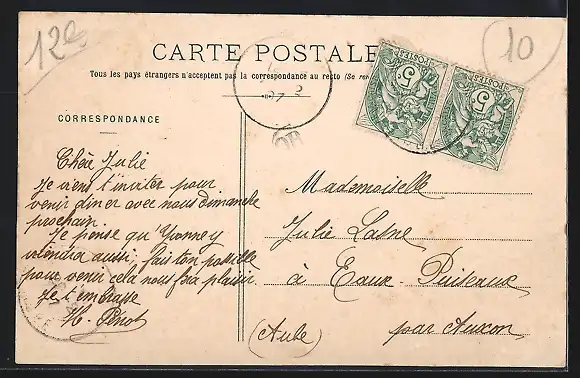 12e
10
CARTE POSTALE
Tous les pays étrangers n'acceptent pas la correspondance au recto (Se
CORRESPONDANCE
Chère Julie
Je viens t'inviter pour
venir diner avec nous dimanche
prochain.
Je pense qu'Yvonne y
viendra aussi, fais ton possible
pour venir cela nous fera plaisir.
Je t'embrasse
Mademoiselle
Julie Lasne
à Eaux-Puiseaux
par Auxon
(Aube)
5
5
OR